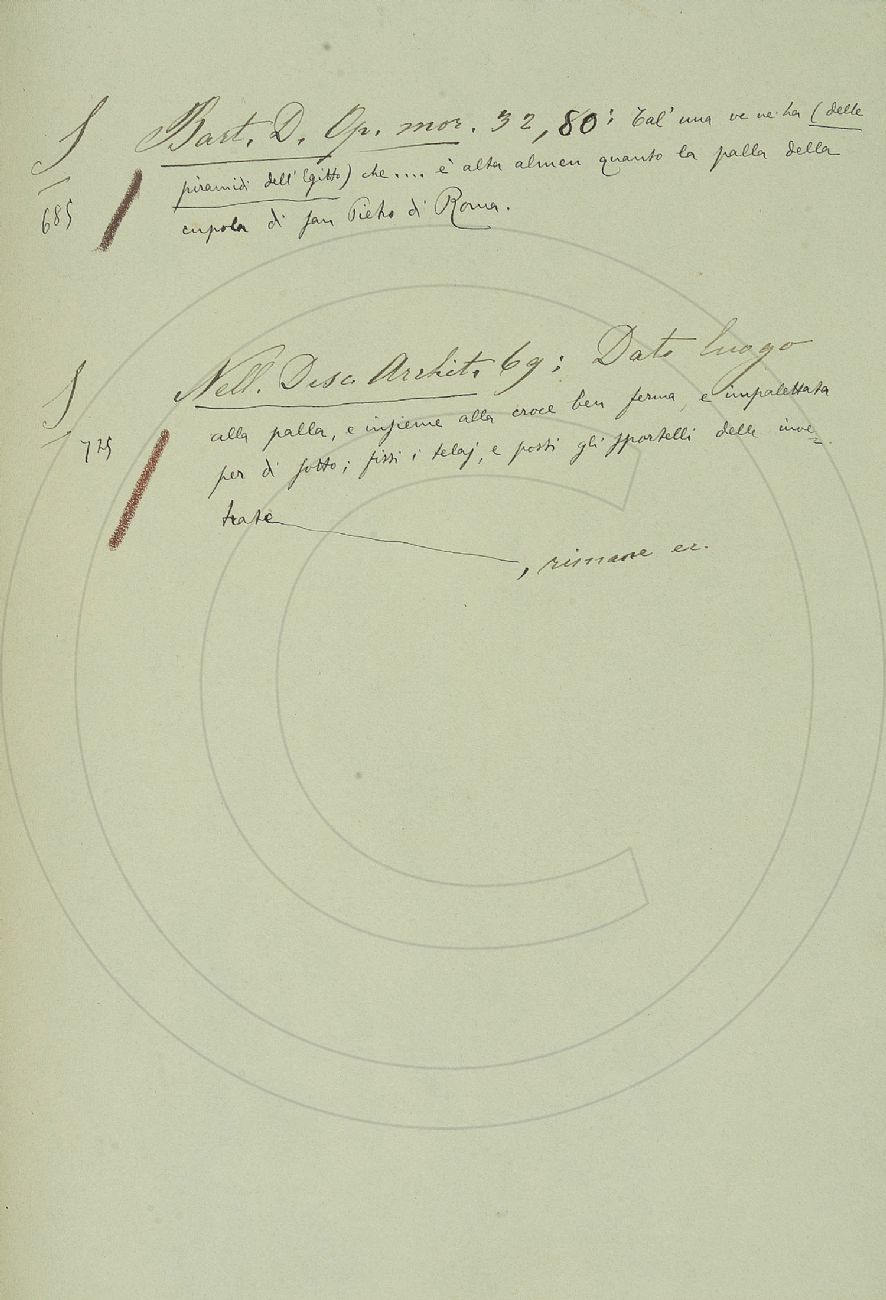 S Bart. D. Op. mor. 32, 80: Tal' una ve ne ha (delle
685 piramidi dell'Egitto) che.... è alta almen quanto la palla della
cupola di San Pietro di Roma.
S Nell. Disc. Archit. 69: Dato luogo
725 alla palla, e insieme alla croce ben ferma, e impalettata
per di sotto; fissi i telaj, e posti gli sportelli delle inve-
trate
, rimane ec.